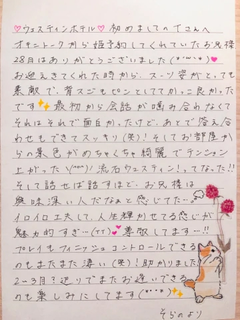 ♡ウェスティンホテル♡ 初めましての下さんへ
オキニトークから姫予約してくれていたお兄様
28日はありがとうございました(*'ー'*)♥
お迎えきてくれた時から、スーツ姿がとっても
素敵で、背スジもピンとしててかっこ良かった
です✨ 最初から会話が噛み合わなくて
それはそれで面白かったけど、あとで答え合
わせもできてスッキリ(笑)! そしてお部屋か
らの景色がめちゃくちゃ綺麗でテンション
上がった\(^^)/ 流石ウェスティン!ってなった!!
そして話せば話すほど、お兄様は
興味深い人だなぁと感じてたー。
イロイロ工夫して、人生輝かせてる感じが
魅力的すぎー(TT)♡尊敬してますー!!
プレイもフィニッシュコントロールできる
のもまたまた凄い(笑)! 助かりました
2〜3月?辺りでまたお逢いできる
の楽しみにしてます(*^^*)✨
そらのより